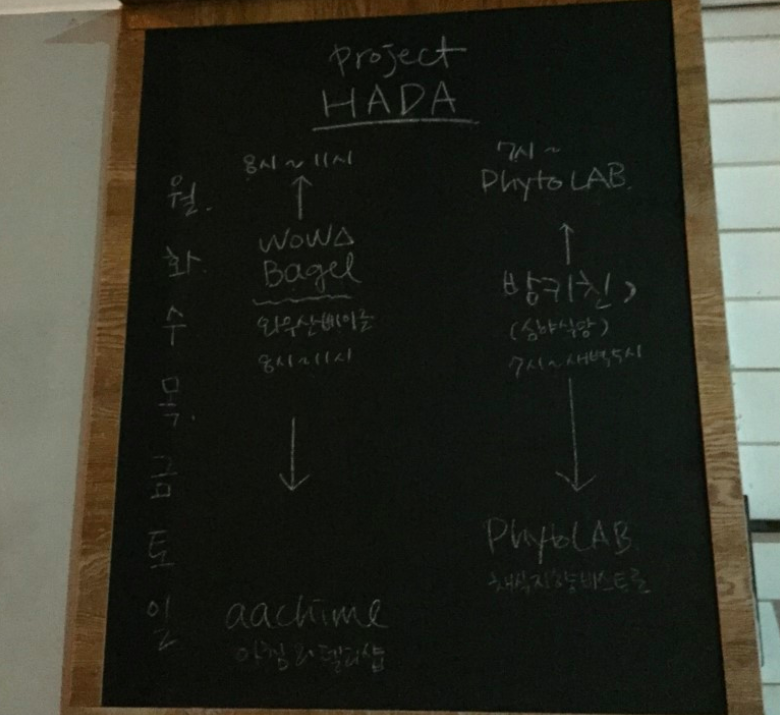 Project
HADA
월.
화
수
목.
금
토
일
8시~11시
WOW△
Bagel
와우산베이글
8시~11시
aachime
아침
7시~
Phyto LAB.
밤키친
(심야식당)
7시~새벽5시
PhytoLAB
채식지향비스트로